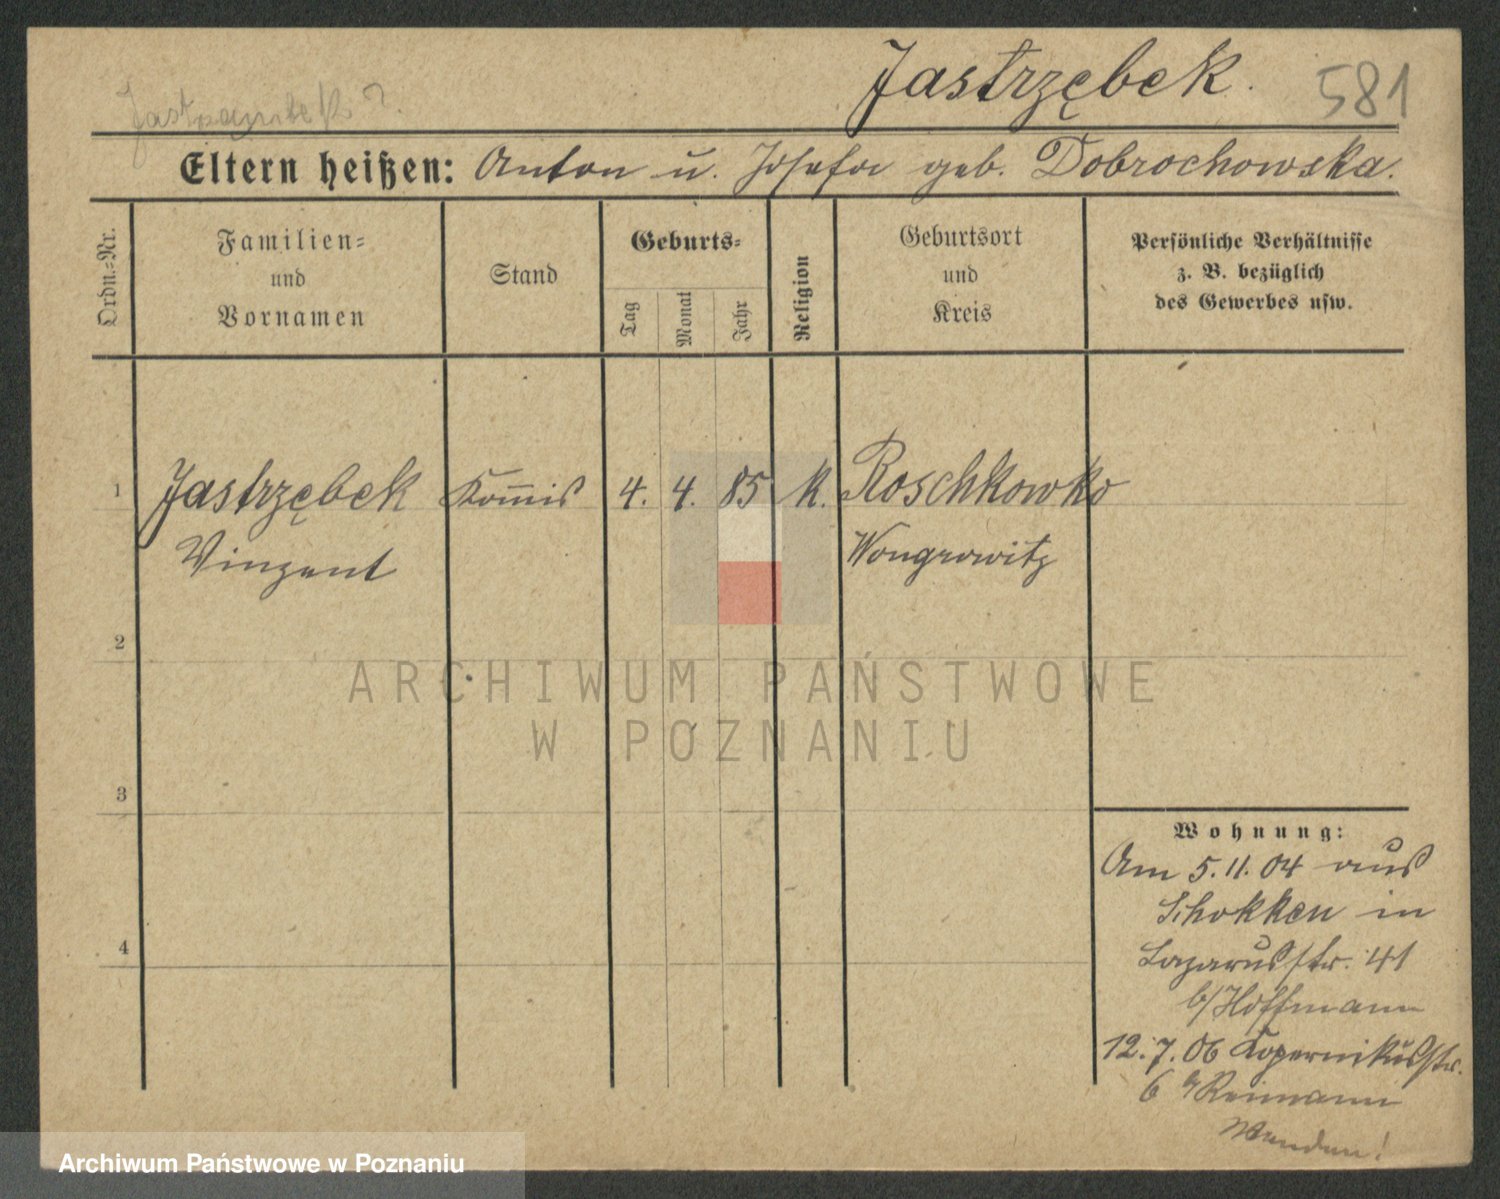 Jastrzębek. 581
Eltern heißen: Anton u. Josefa geb. Dobrochowska.
Ordn.-Nr.
Familien-
und
Vornamen
Stand
Geburts-
Tag
Monat
Jahr
Religion
Geburtsort
und
Kreis
Persönliche Verhältnisse
z. B. bezüglich
des Gewerbes usw.
1 Jastrzębek Kom̅is 4. 4. 85 k. Roschkowko
Vinzent Wongrowitz
2
ARCHIWUM PAŃSTWOWE
W POZNANIU
3
Wohnung:
Am 5.11.04 aus
Schokken in
Lazarusstr. 41
b/Hoffmann
12.7.06 Kopernikusstr.
6 b/Reimann
Wenden!
4
Archiwum Państwowe w Poznaniu